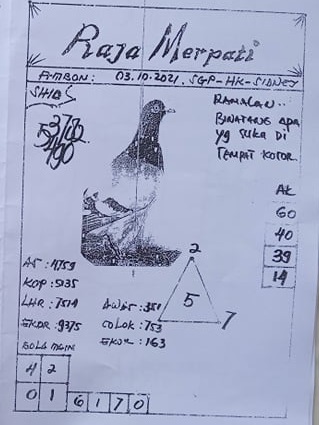 Raja Merpati
AMBON: 03.10.2021. SGP-HK-SIDNEY
SHIO
RAMALAN..
BINATANG APA
yg SUKA DI
TEMPAT KOTOR.
AK
60
40
39
14
2
5
7
AS: 4759
KOP: 5135
LHR: 7514
EKOR: 9375
AWAS: 351
COLOK: 753
EKOR: 163
BOLA MAIN
4 2
0 1 6 1 7 0